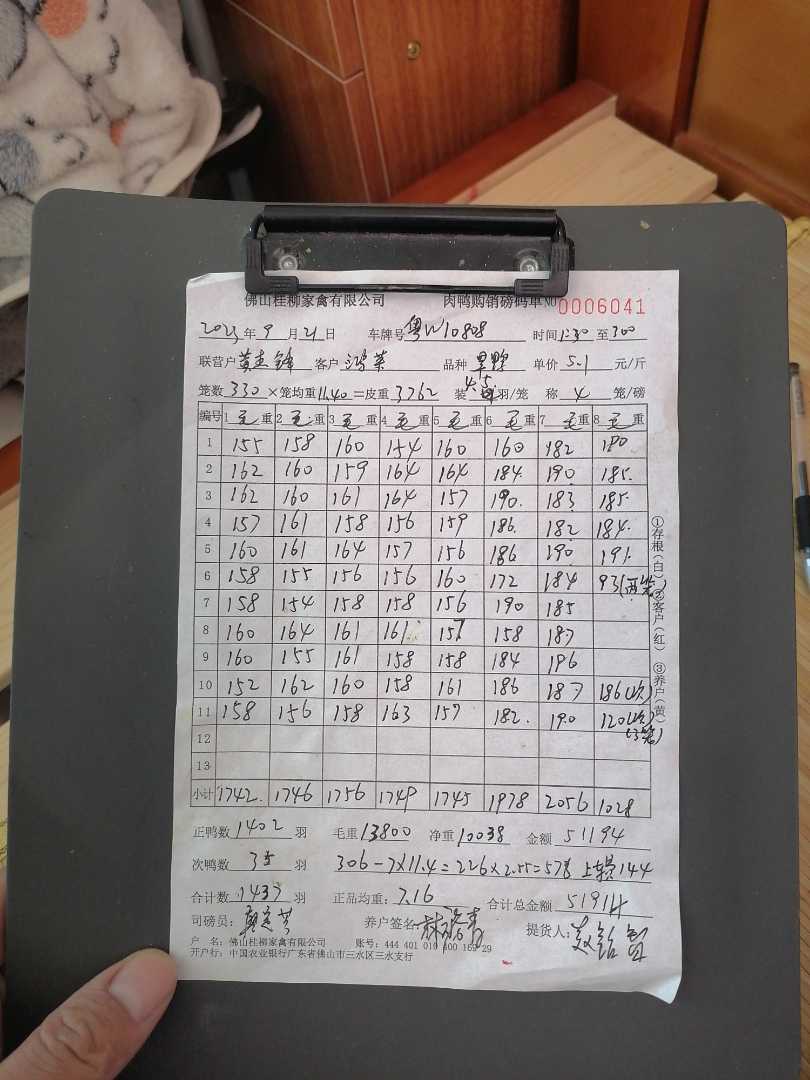 佛山桂柳家禽有限公司 肉鸭购销磅码单 NO 0006041
2023年9月21日 车牌号 粤W10808 时间1:30至300
联营户 黄 锋 客户 鸿 品种 单价 5.1 元/斤
笼数 330 ×笼均重 11.40 =皮重 3762 装 4.5 羽/笼 称 4 笼/磅
编号 1 毛重 2 毛重 3 毛重 4 毛重 5 毛重 6 毛重 7 毛重 8 毛重
1 155 158 160 154 160 160 182 180
2 162 160 159 164 164 184. 190 185.
3 162 160 161 164 157 190. 183 185.
4 157 161 158 156 159 186. 182 184.
5 160 161 164 157 156 186 190 191.
6 158 155 156 156 160 172 184 93(两笼)
7 158 154 158 158 156 190 185
8 160 164 161 161 157 158 187
9 160 155 161 158 158 184 196
10 152 162 160 158 161 186 187 186(次)
11 158 156 158 163 157 182. 190 120(次)
(3笼)
12
13
小计 1742. 1746 1756 1749 1745 1978 2056 1028
正鸭数 1402 羽 毛重 13800 净重 10038 金额 51194
次鸭数 35 羽 306-7×11.4=226×2.55=576 上 144
合计数 1437 羽 正品均重: 7.16 合计总金额 51914
司磅员: 养户签名: 林 提货人:
户 名: 佛山桂柳家禽有限公司 账号: 444 401 010 400 169 29
开户行: 中国农业银行广东省佛山市三水区三水支行
①存根(白)②客户(红) ③养户(黄)